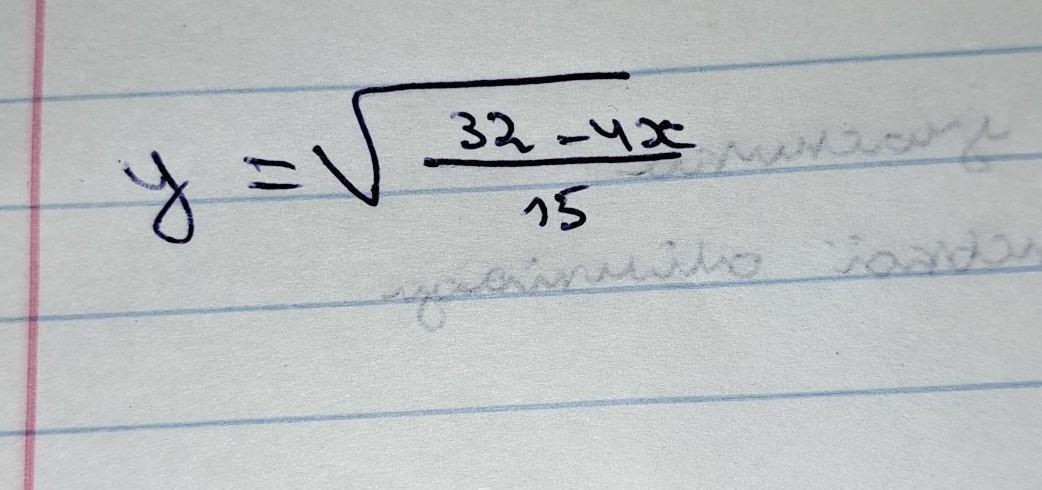 y = √((32 - 4x)/15)